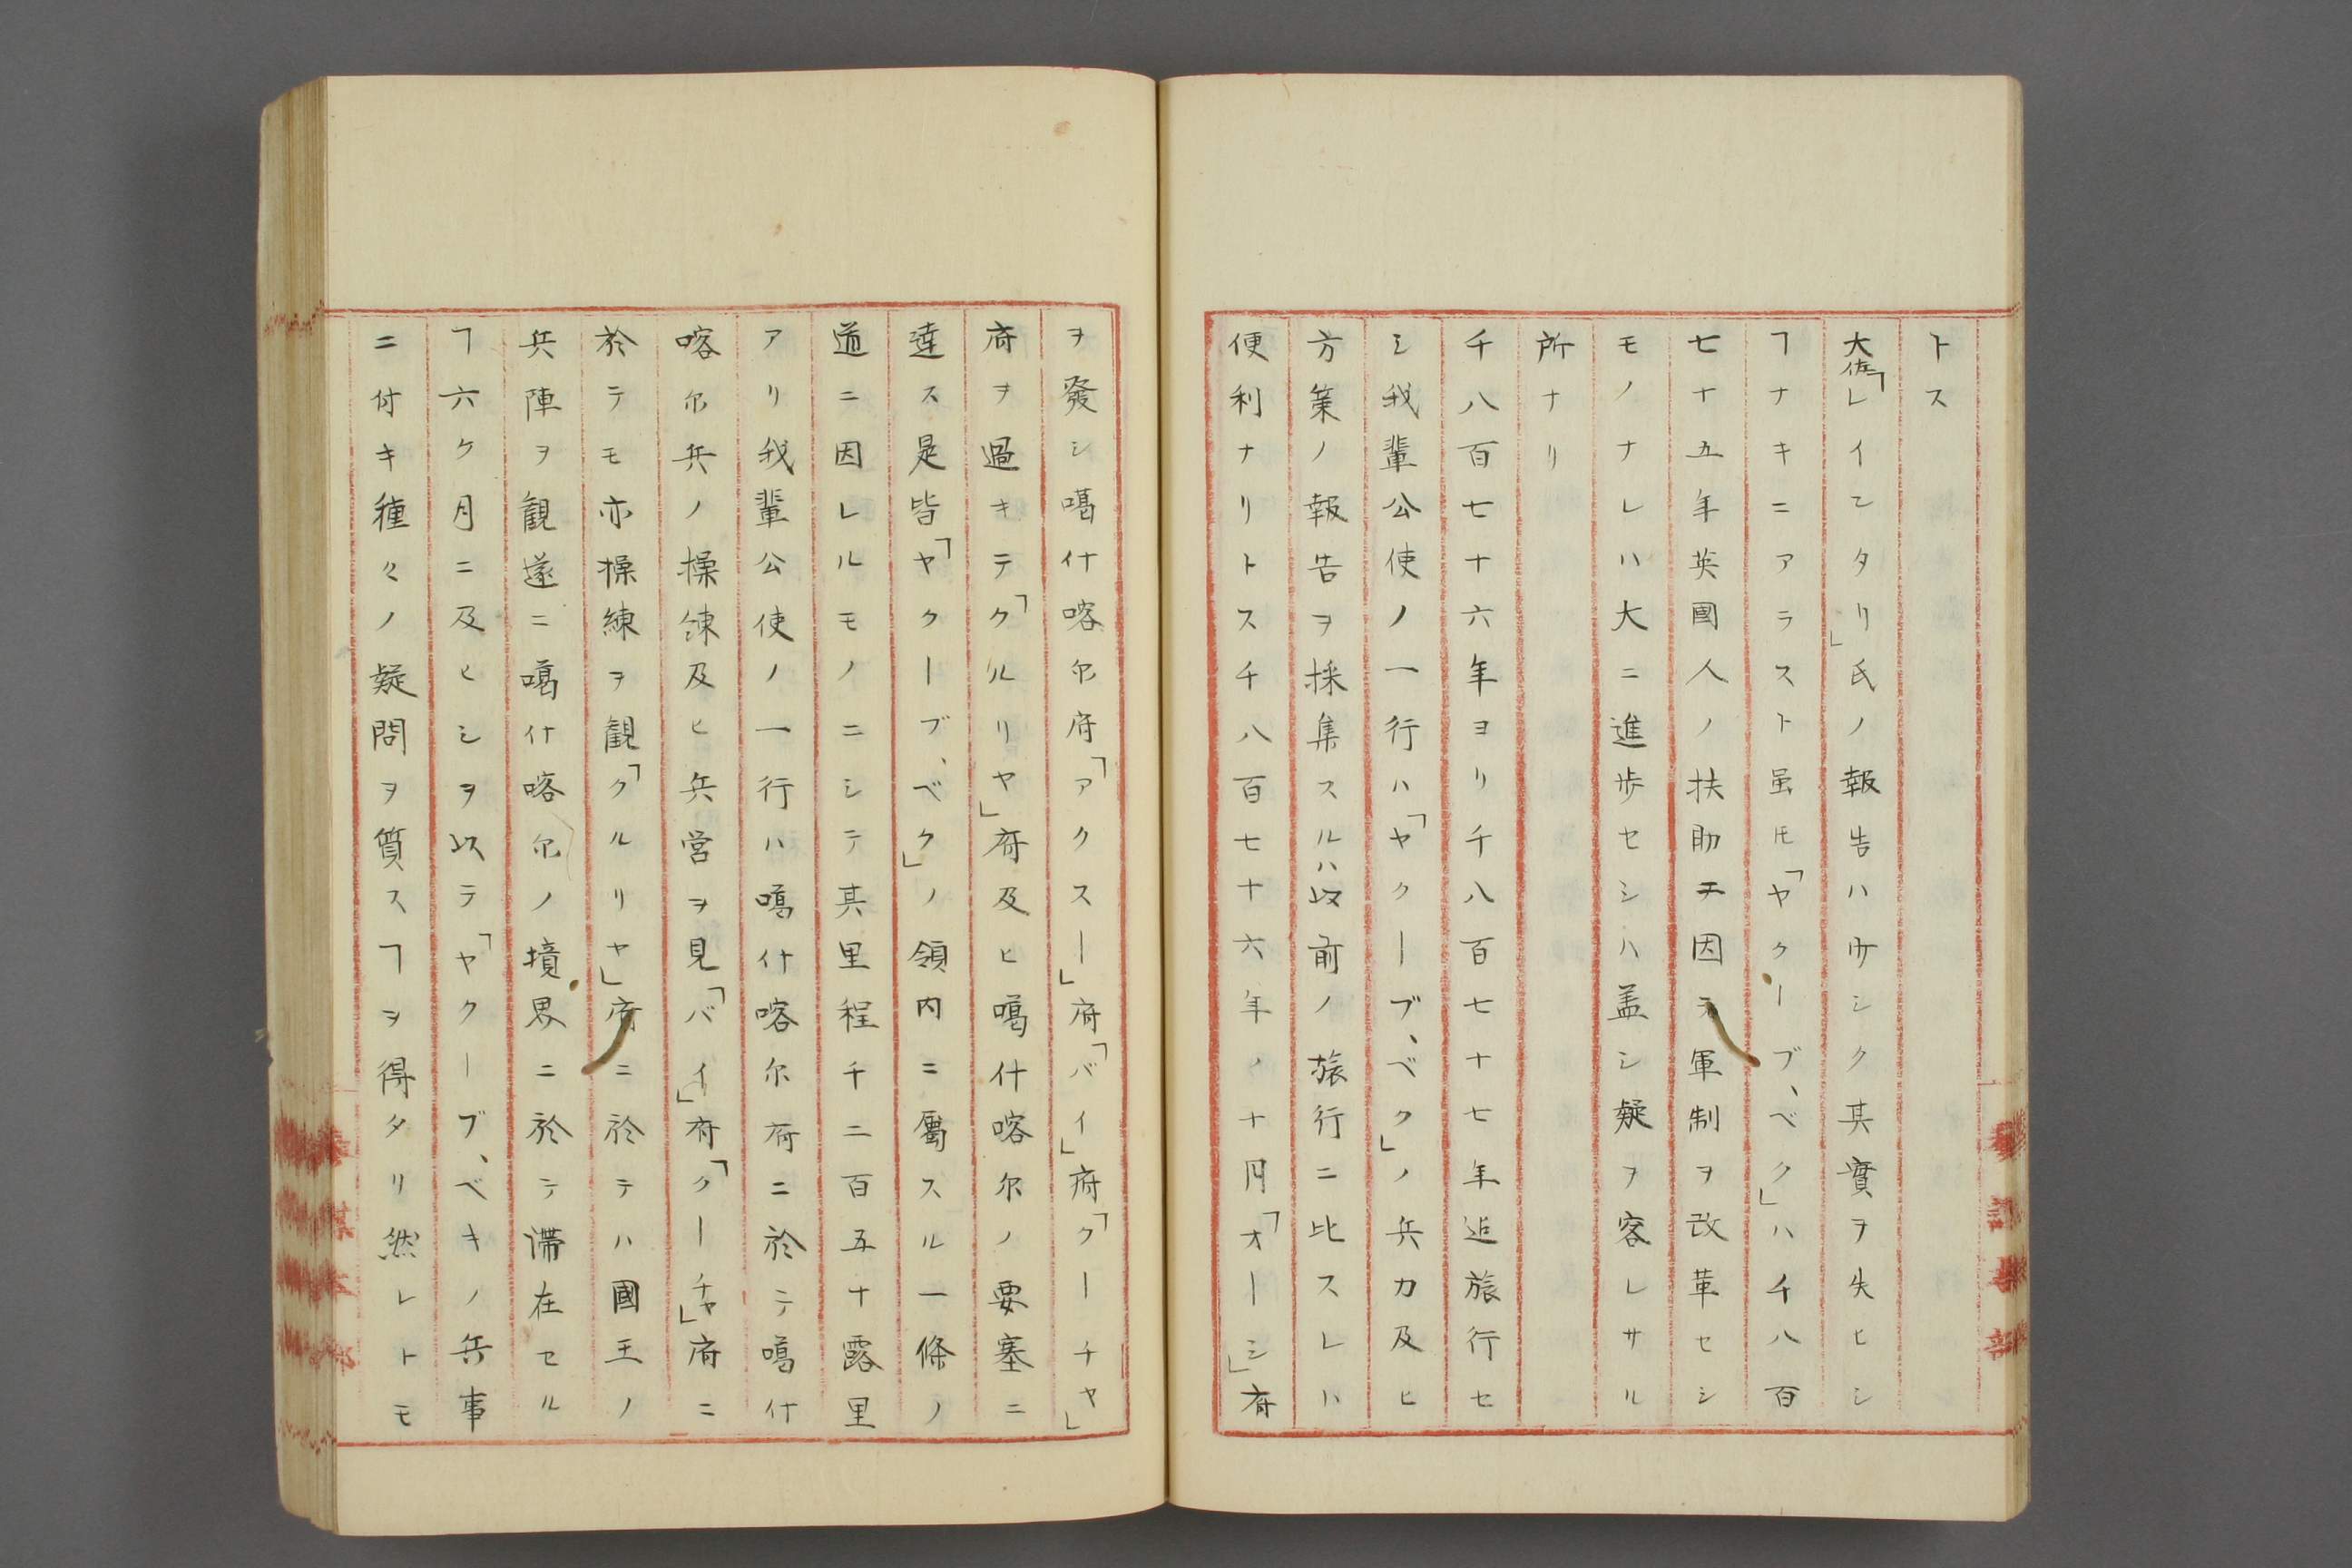 トス
大佐「レイヒタリ」氏ノ報告ハ少シク其實ヲ失ヒシ
ヿナキニアラスト虽𪜈「ヤクーブ、ベク」ハ千八百
七十五年英國人ノ扶助ニ因テ軍制ヲ改革セシ
モノナレハ大ニ進歩セシハ盖シ疑ヲ容レサル
所ナリ
千八百七十六年ヨリ千八百七十七年迠旅行セ
シ我輩公使ノ一行ハ「ヤクーブ、ベク」ノ兵力及ヒ
方策ノ報告ヲ採集スルハ以前ノ旅行ニ比スレハ
便利ナリトス千八百七十六年ノ十月「オーシ」府
ヲ發シ噶什喀尔府「アクスー」府「バイ」府「クーチヤ」
府ヲ過キテ「クルリヤ」府及ヒ噶什喀尔ノ要塞ニ
達ス是皆「ヤクーブ、ベク」ノ領内ニ屬スル一條ノ
道ニ因レルモノニシテ其里程千二百五十露里
アリ我輩公使ノ一行ハ噶什喀尔府ニ於テ噶什
喀尔兵ノ操練及ヒ兵営ヲ見「バイ」府「クーチヤ」府ニ
於テモ亦操練ヲ観「クルリヤ」府ニ於テハ國王ノ
兵陣ヲ観遂ニ噶什喀尔ノ境界ニ於テ滯在セル
ヿ六ケ月ニ及ヒシヲ以テ「ヤクーブ、ベキノ兵事
ニ付キ種々ノ疑問ヲ質スヿヲ得タリ然レトモ